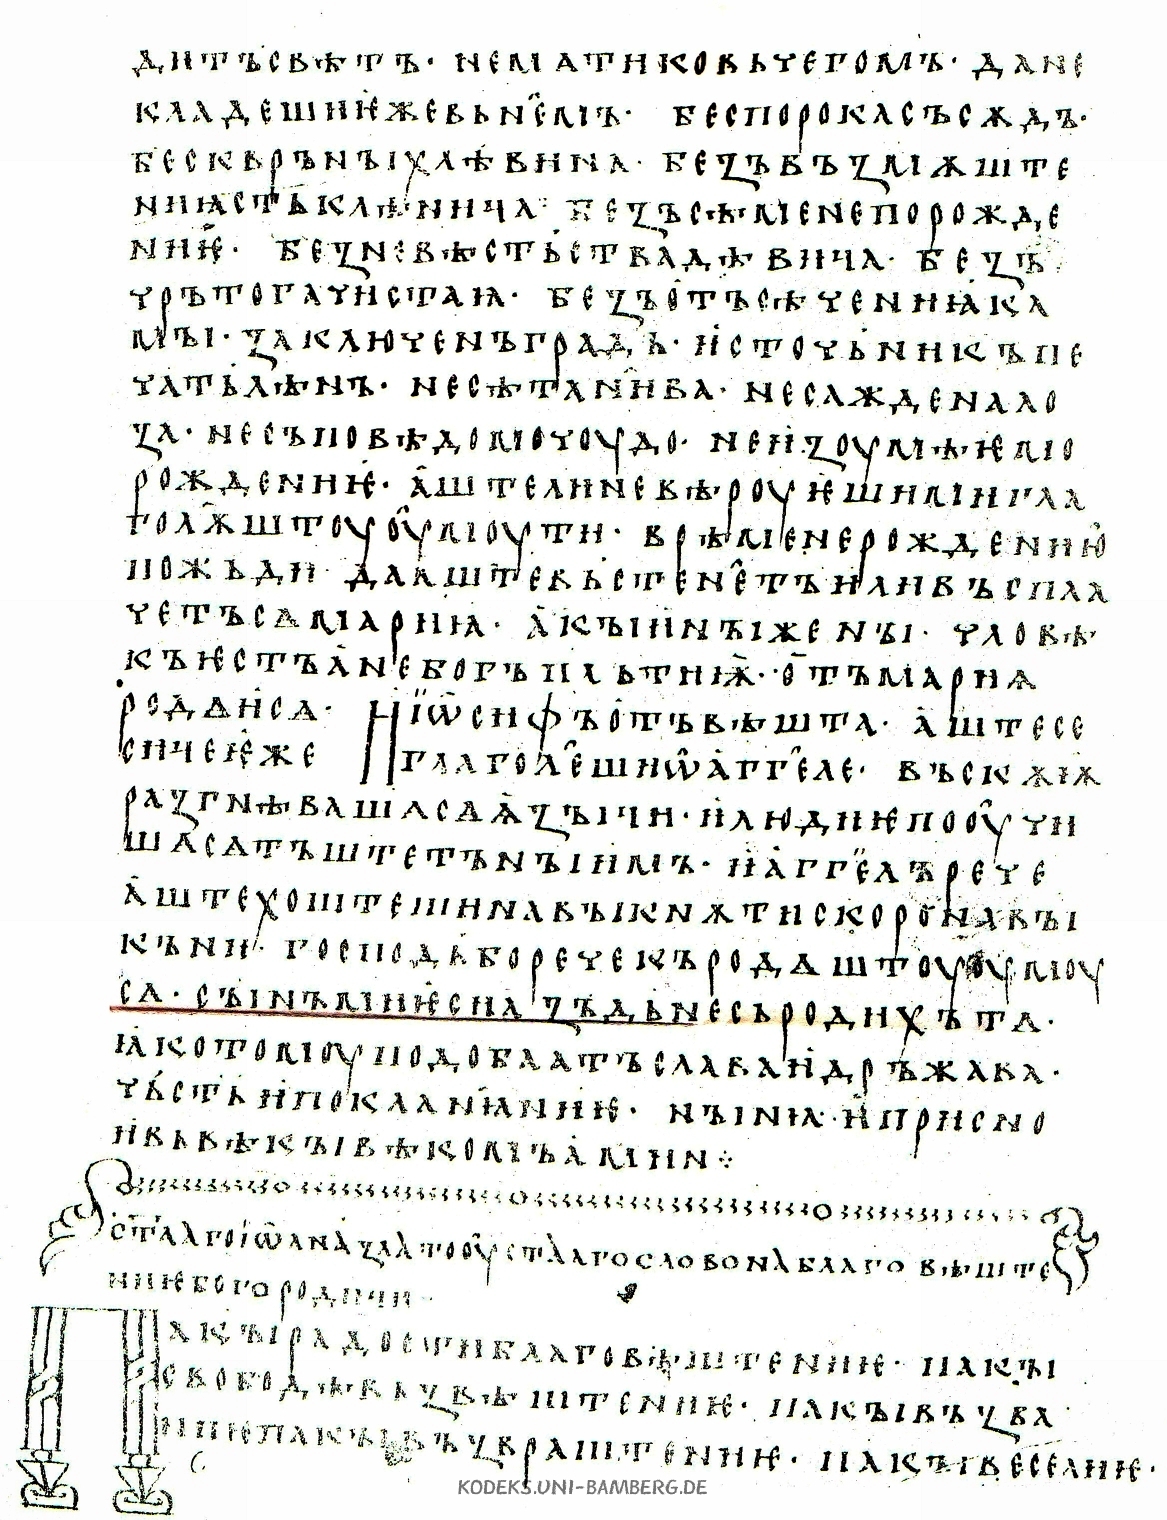 дитъсвѣтъ· нематиковьчегомъ· дане
кладешиѥжевьнемъ· беспорокасъсѫдъ·
бескврънъıхлѣвина· беꙁъвъꙁмѫште
ниꙗстъклѣница· беꙁъсѣменепорожде
ниѥ· беꙁневѣстьствадѣвица· беꙁъ
чрътогачистаꙗ· беꙁъотъсѣчениꙗка
мъı· ꙁаключенъградъ· источьникъпе
чатьлѣнъ· несѣтанива· несаждеnaло
ꙁа· несъповѣдомочоудо· неиꙁоумѣѥмо
рождениѥ· аштелиневѣроуѥшимигла
гоѭштоуоумоути· врѣменерождению
пожъди даѧштевьстенетъиливъспла
четъсѧмариꙗ· ѣкъıинъıженъı· ѱловѣ
къѥстъанебогъплътиѭ· отъмариѧ
родѧисѧ· Иіѡсифъотъвѣшта· аштесе
сицеѥже глаголешиѡаггеле· въскѫѭ
раꙁгнѣвашѧсѧѩꙁъıци· илюдиѥпооучи
шѧсѧтъштетънъıимъ· иаггелърече
аштехоштешинавъıкнѫтискоронавъı
кьни· господьборечекъродѧштоуоумоу
сѧ· съıнъмиѥсиаꙁъдьнесьродихътѧ·
ꙗкотомоуподобаатъславаидръжава·
чьстьипокланꙗниѥ· нъıнꙗиприсно
ивьвѣкъıвѣкомъамин⁘
стаагоіѡанаꙁлатооустаагословонаблаговѣште
ниѥбогородици
акъıрадостиблаговѣштениѥ· пакъı
свободѣвьꙁвѣштениѥ· пакъıвъꙁва
ниѥпакъıвъꙁвраштениѥ· пакъıвеселиѥ·
KODEKS.UNI-BAMBERG.DE